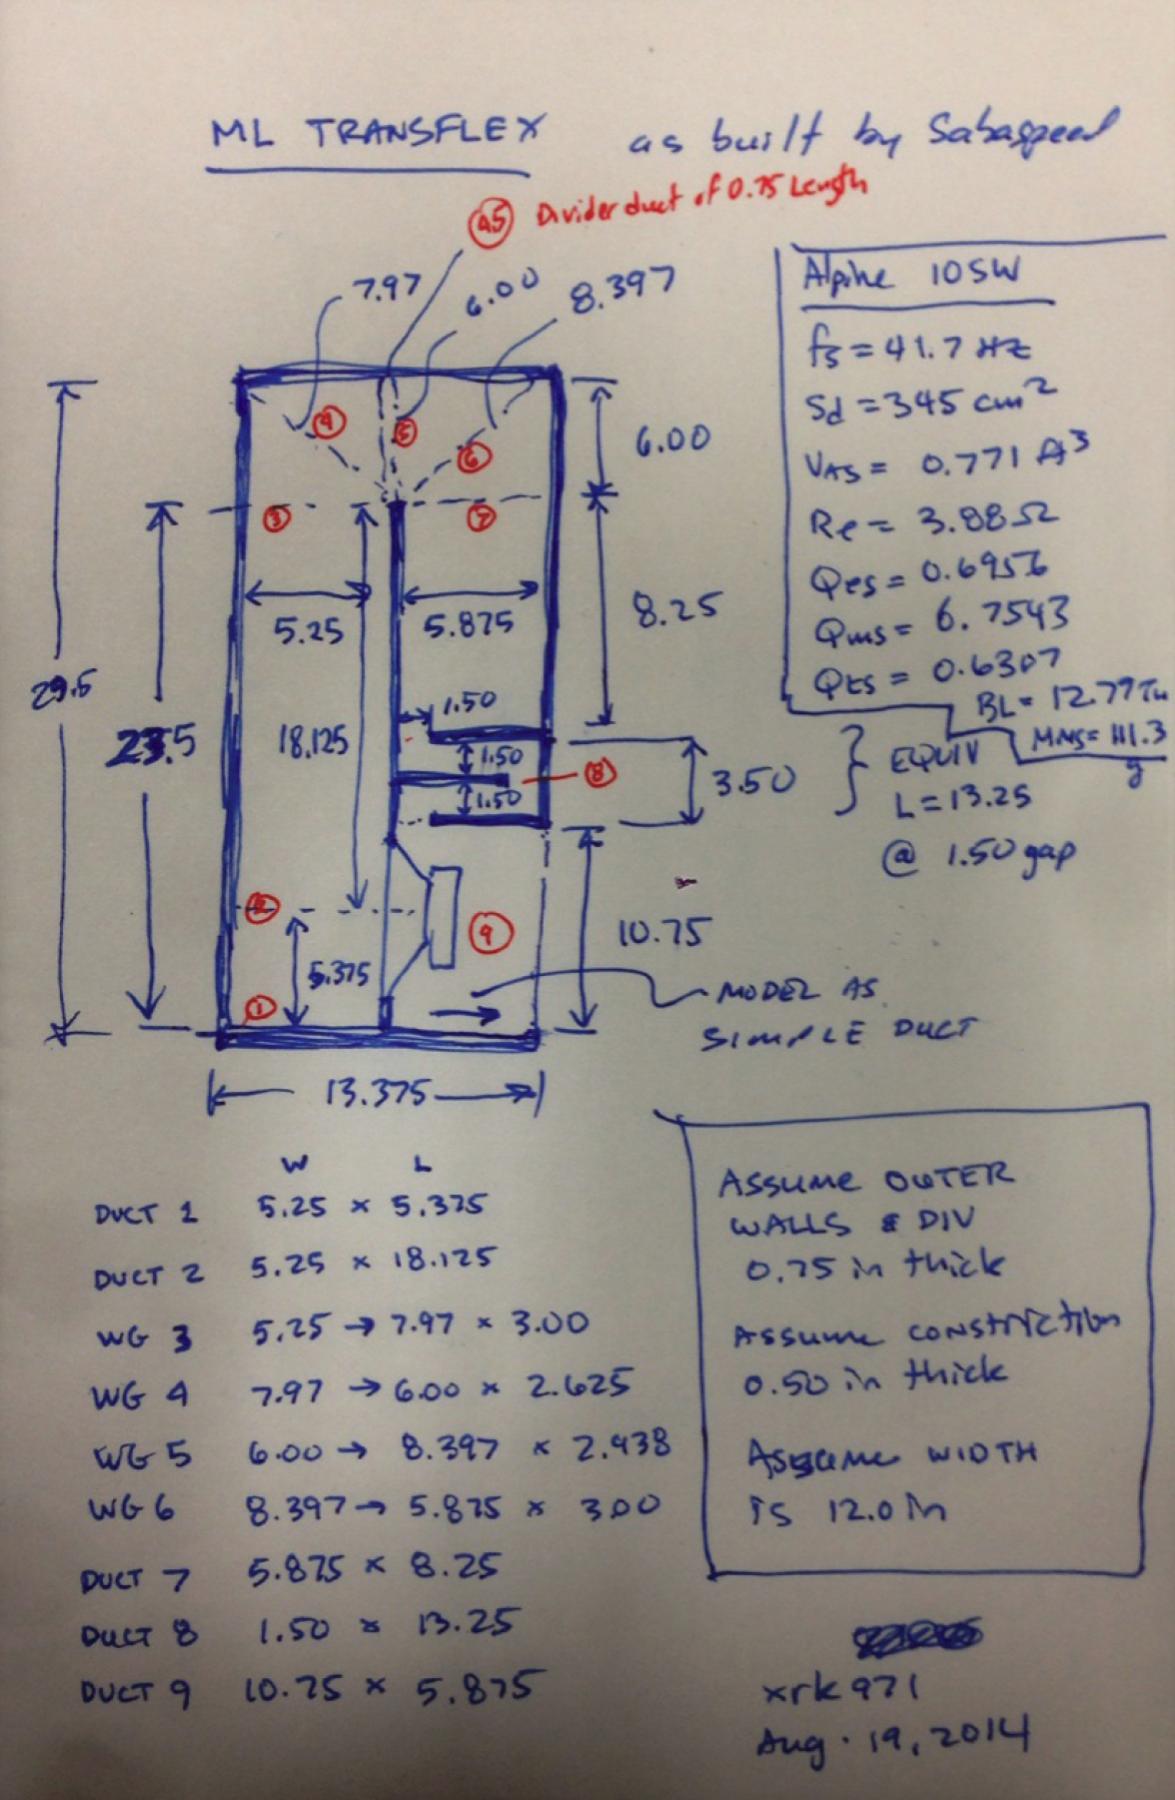 ML TRANSFLEX as built by Sabaspeed
4.5 Divider duct of 0.75 Length
7.97
6.00
8.397
Alpine 10SW
fs = 41.7 Hz
Sd = 345 cm²
VAS = 0.771 ft³
Re = 3.88Ω
Qes = 0.6956
Qms = 6.7543
Qts = 0.6307
BL = 12.77 Tm
MMS = 111.3 g
4
5
6
6.00
3
7
29.5
23.5
5.25
5.875
8.25
18.125
1.50
1.50
1.50
8
3.50
EQUIV
L = 13.25
@ 1.50 gap
2
9
10.75
5.375
1
MODEL AS
SIMPLE DUCT
13.375
W L
DUCT 1 5.25 × 5.375
DUCT 2 5.25 × 18.125
WG 3 5.25 → 7.97 × 3.00
WG 4 7.97 → 6.00 × 2.625
WG 5 6.00 → 8.397 × 2.438
WG 6 8.397 → 5.875 × 3.00
DUCT 7 5.875 × 8.25
DUCT 8 1.50 × 13.25
DUCT 9 10.75 × 5.875
ASSUME OUTER
WALLS & DIV
0.75 in thick
ASSUME CONSTRICTION
0.50 in thick
ASSUME WIDTH
is 12.0 in
xrk971
Aug. 19, 2014